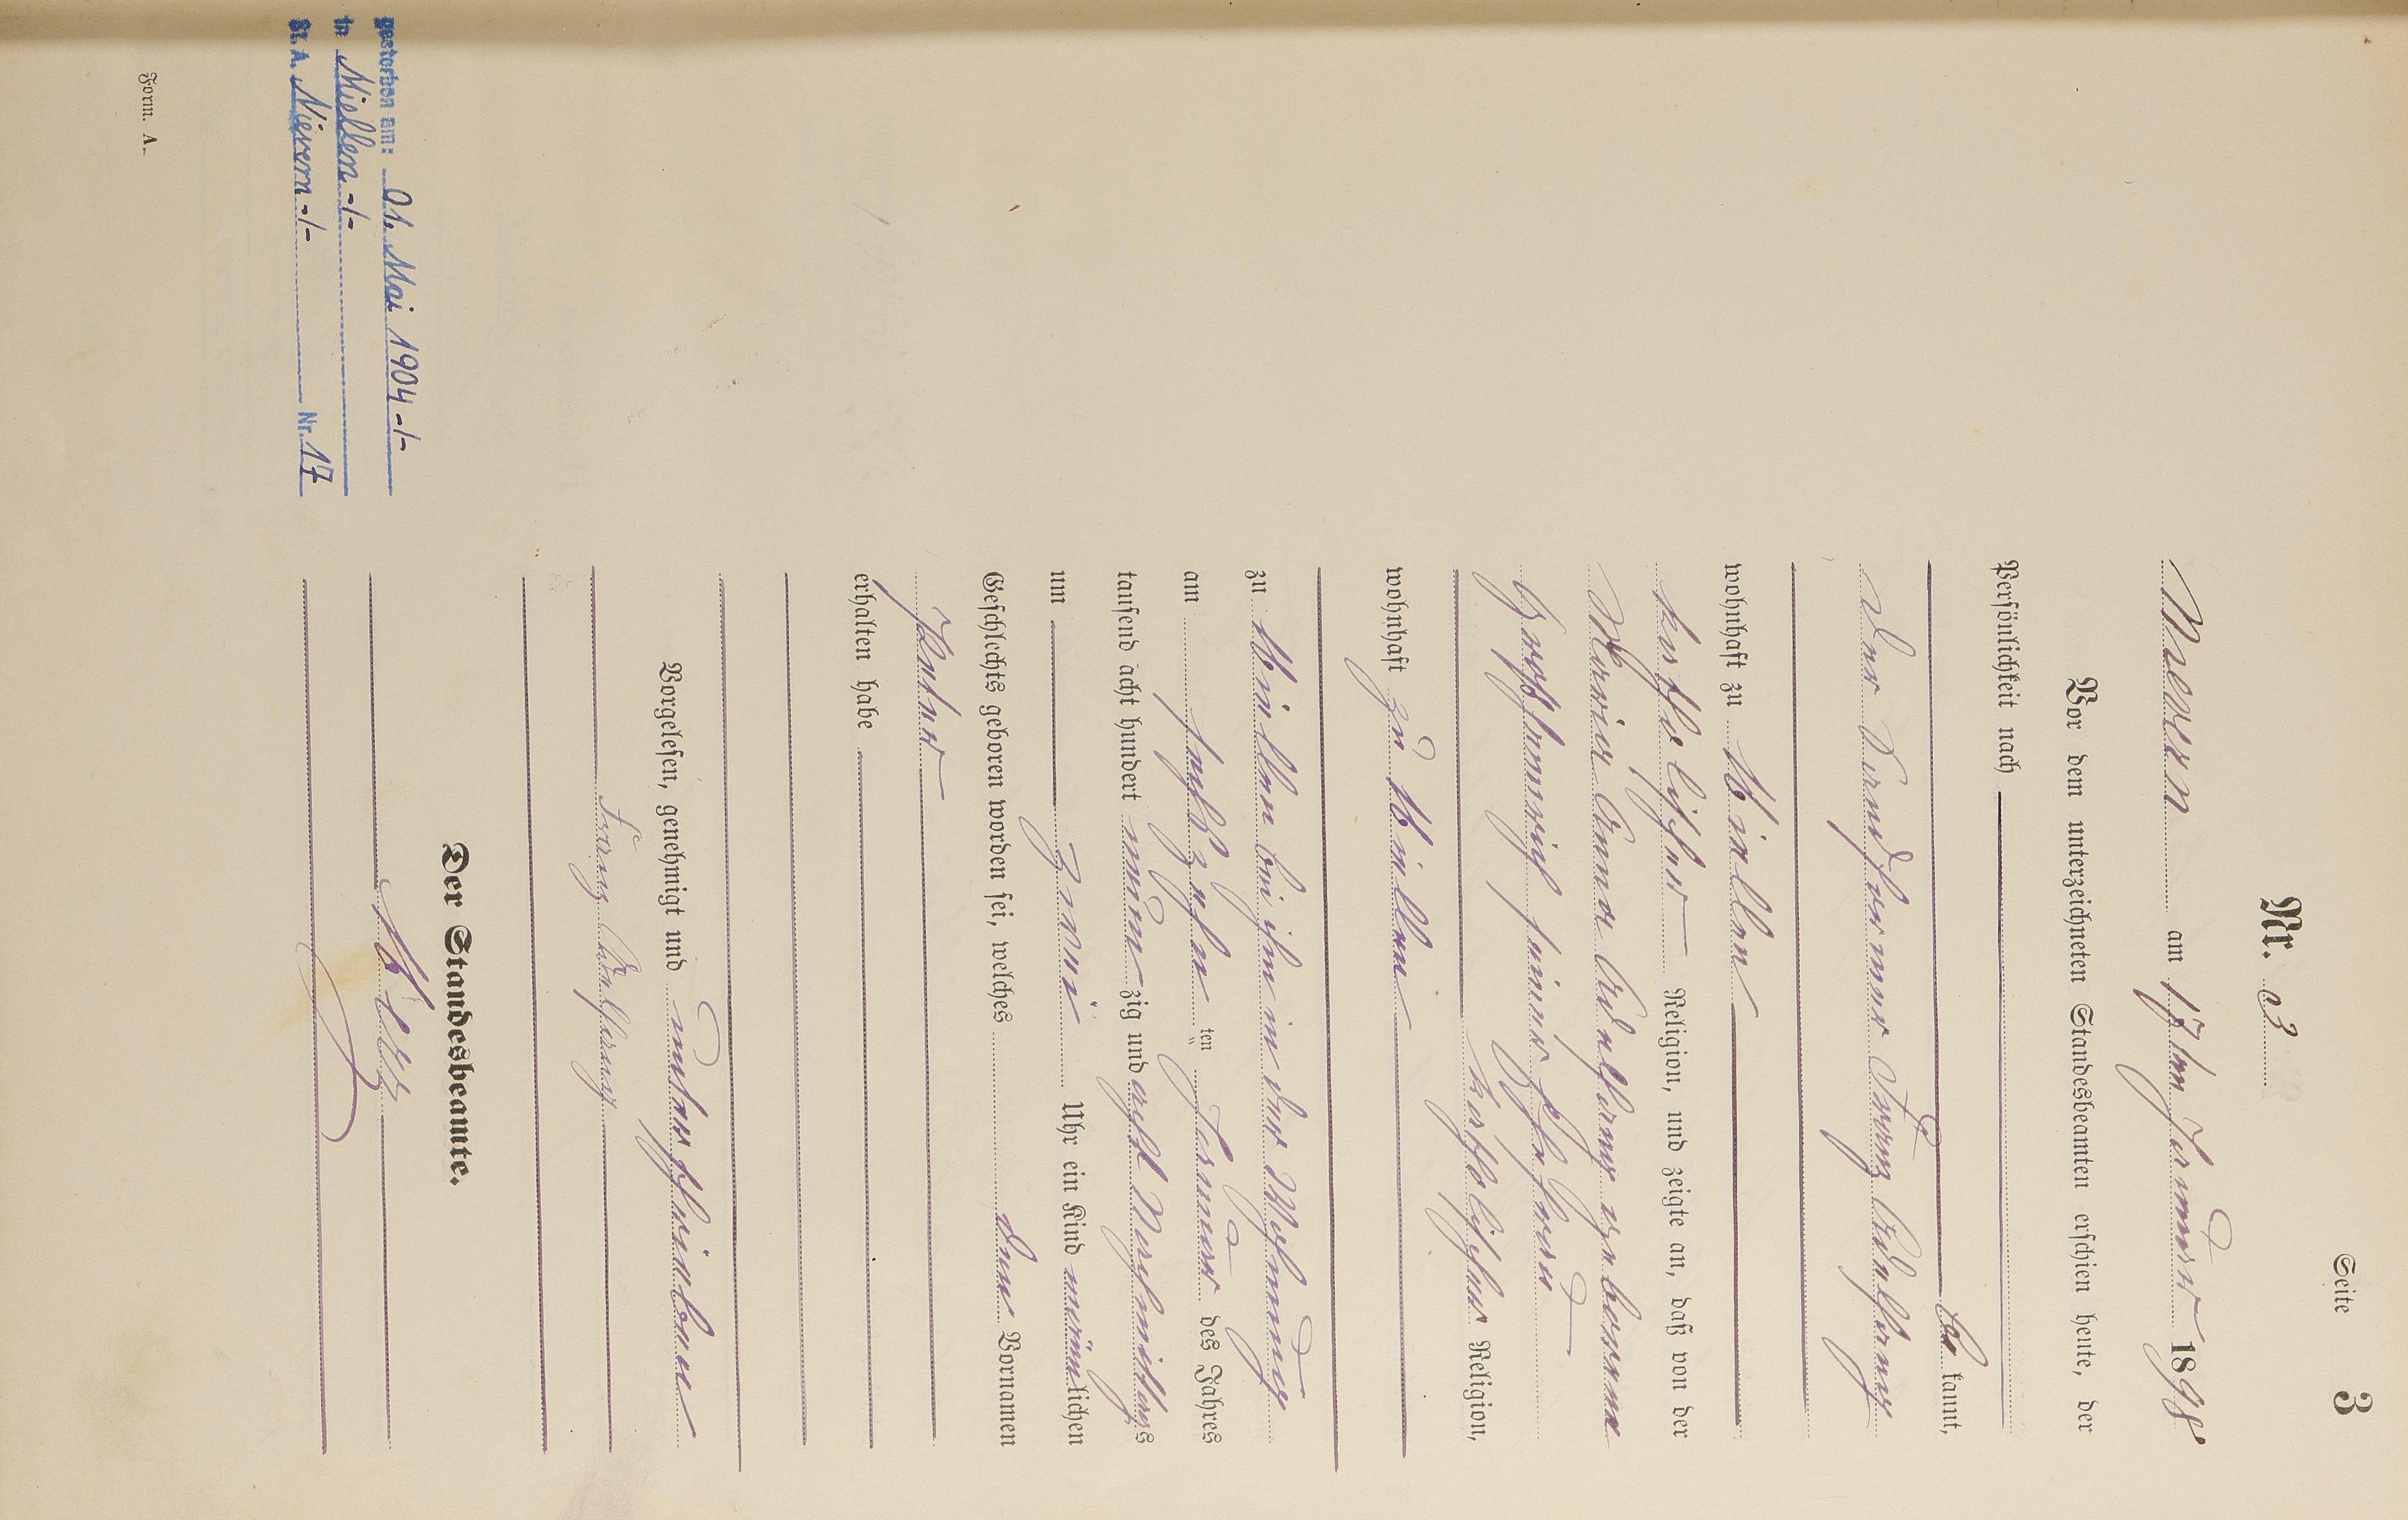 Seite 3
Nr. 3
Nievern am 17ten Januar 1898
Vor dem unterzeichneten Standesbeamten erschien heute, der
Persönlichkeit nach
be kannt,
der Franz
wohnhaft zu Miellen
katholischer Religion, und zeigte an, daß von der
Maria Anna geborene
seiner Ehefrau
katholischer Religion,
wohnhaft zu Miellen
zu Miellen bei ihm in der Wohnung
am sechszehn ten Januar des Jahres
tausend acht hundert neun zig und acht Nachmittags
um zwei Uhr ein Kind männlichen
Geschlechts geboren worden sei, welches den Vornamen
Peter
erhalten habe
Vorgelesen, genehmigt und unterschrieben
Franz
Der Standesbeamte.
gestorben am: 01. Mai 1904 -/-
in Miellen -/-
St. A. Nievern -/- Nr. 17
Form. A.